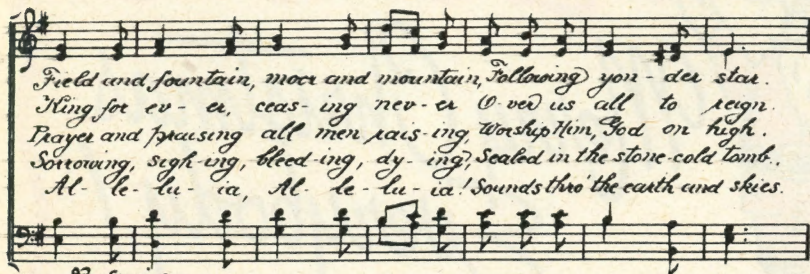 Field and fountain, moor and mountain, Following yon-der star.
King for ev-er, ceas-ing nev-er O-ver us all to reign.
Prayer and praising all men rais-ing, Worship Him, God on high.
Sorrowing, sigh-ing, bleed-ing, dy-ing, Sealed in the stone-cold tomb.
Al-le-lu-ia, Al-le-lu-ia! Sounds thro' the earth and skies.